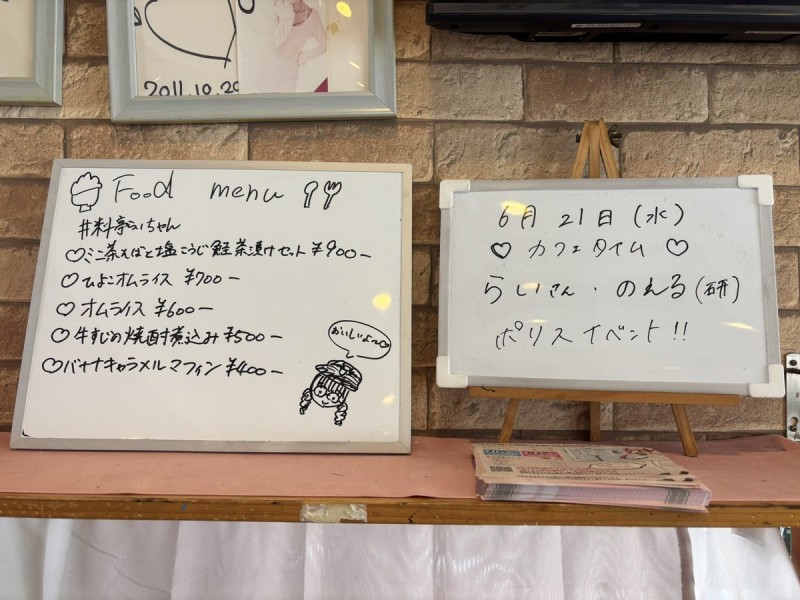 2011.10.20
Food menu
#料亭らいちゃん
♡ミニ茶そばと塩こうじ鮭茶漬けセット ¥900−
♡ひよこオムライス ¥700−
♡オムライス ¥600−
♡牛すじの焼酎煮込み ¥500−
♡バナナキャラメルマフィン ¥400−
おいしいよ〜♡
6月21日(水)
♡カフェタイム♡
らいさん・のえる(研)
ポリスイベント!!